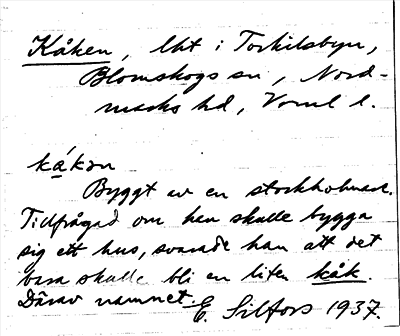 Kåken, lht i Torkilsbyn,
Blomskogs sn, Nord-
marks hd, Vrml l.
kǻkən
Byggt av en stockholmare.
Tillfrågad om han skulle bygga
sig ett hus, svarade han att det
bara skulle bli en liten kåk.
Därav namnet. E. Silfors 1937.